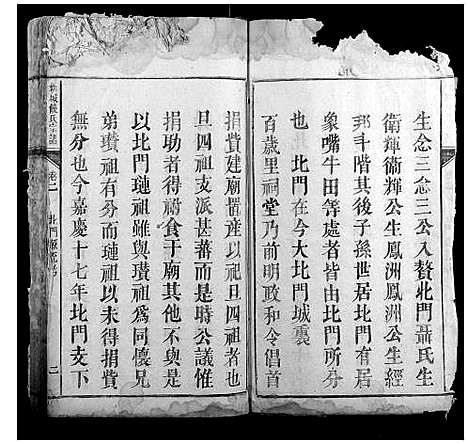 生念三念三公入贅北門聶氏生
衛輝衛輝公生鳳洲鳳洲公生經
邦千階其後子孫世居北門有居
象嘴牛田等處者皆由北門所分
也 北門在今大北門城裏
百歲里祠堂乃前明政和令倡首
捐貲建廟置產以祀旦四祖貲以
旦四祖支派甚蕃而是時公議惟
捐助者得祔食于廟其他不與是
以北門璉祖雖與瓚祖爲同懷兄
弟瓚祖有分而璉祖以未得捐貲
無分也今嘉慶十七年北門支下
卷二
北門
二